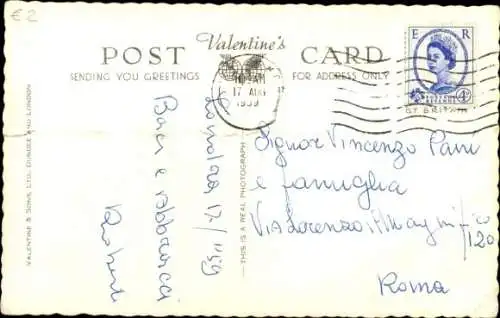 €2
Valentine's
POST CARD
SENDING YOU GREETINGS
FOR ADDRESS ONLY
E R
4D
17 AUG
1959
BY BRITAIN
VALENTINE & SONS, LTD., DUNDEE AND LONDON
THIS IS A REAL PHOTOGRAPH
Londra 17/ '59
Baci e Abbracci
Robert
Signor Vincenzo
e famiglia
Via Lorenzo il Magnifico
120
Roma